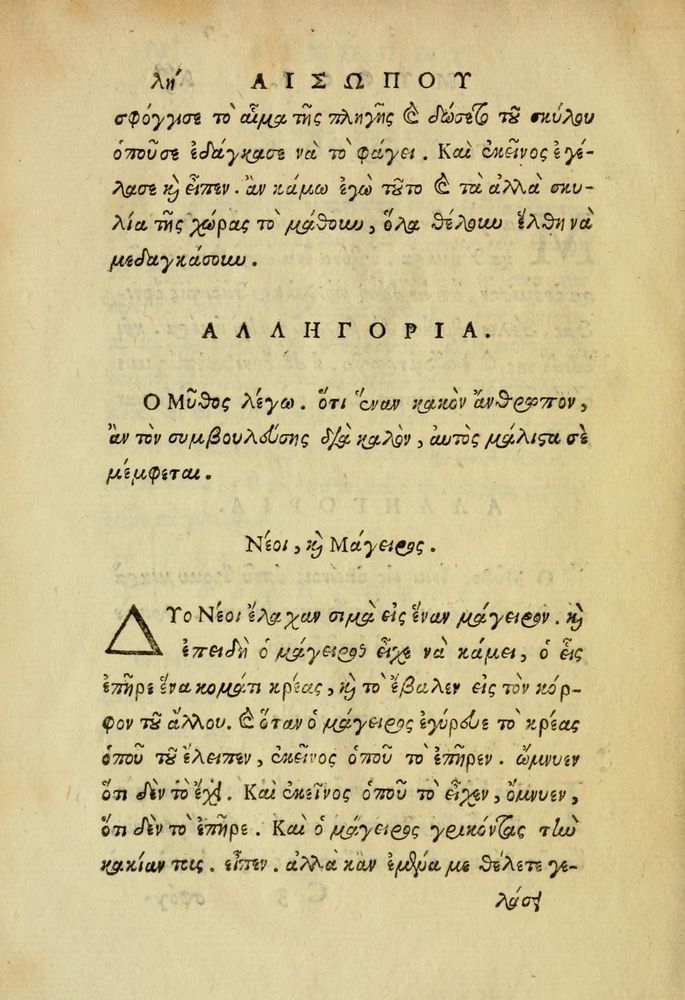 λη΄ ΑΙΣΩΠΟΥ
σφόγγισε τὸ αἷμα τῆς πληγῆς καὶ δώσετο τοῦ σκύλου
ὁποῦσε ἐδάγκασε νὰ τὸ φάγει. Καὶ ἐκεῖνος ἐγέ-
λασε καὶ εἶπεν. ἂν κάμω ἐγὼ τοῦτο καὶ τὰ ἀλλὰ σκυ-
λία τῆς χώρας τὸ μάθουν, ὅλα θέλουν ἔλθη νὰ
μεδαγκάσουν.
ΑΛΛΗΓΟΡΙΑ.
Ο Μῦθος λέγω. ὅτι ἕναν κακὸν ἄνθρωπον,
ἂν τὸν συμβουλεύσης διὰ καλὸν, ἀυτὸς μάλιστα σὲ
μέμφεται.
Νέοι, καὶ Μάγειρος.
ΔΥο Νέοι ἔλαχαν σιμὰ εἰς ἕναν μάγειρον. καὶ
ἐπειδὴ ὁ μάγειρος εἶχε νὰ κάμει, ὁ εἷς
ἐπῆρε ἕνα κομάτι κρέας, καὶ τὸ ἔβαλεν εἰς τὸν κόρ-
φον τοῦ ἄλλου. καὶ ὅταν ὁ μάγειρος ἐγύρευε τὸ κρέας
ὁποῦ τοῦ ἔλειπεν, ἐκεῖνος ὁποῦ τὸ ἐπῆρεν. ὤμνυεν
ὅτι δὲν τὸ ἔχει. Καὶ ἐκεῖνος ὁποῦ τὸ εἶχεν, ὄμνυεν,
ὅτι δὲν τὸ ἐπῆρε. Καὶ ὁ μάγειρος γρικόντας τὴν
κακίαν τοις. εἶπεν. ἀλλὰ κἂν ἐμένα με θέλετε γε-
λάσει